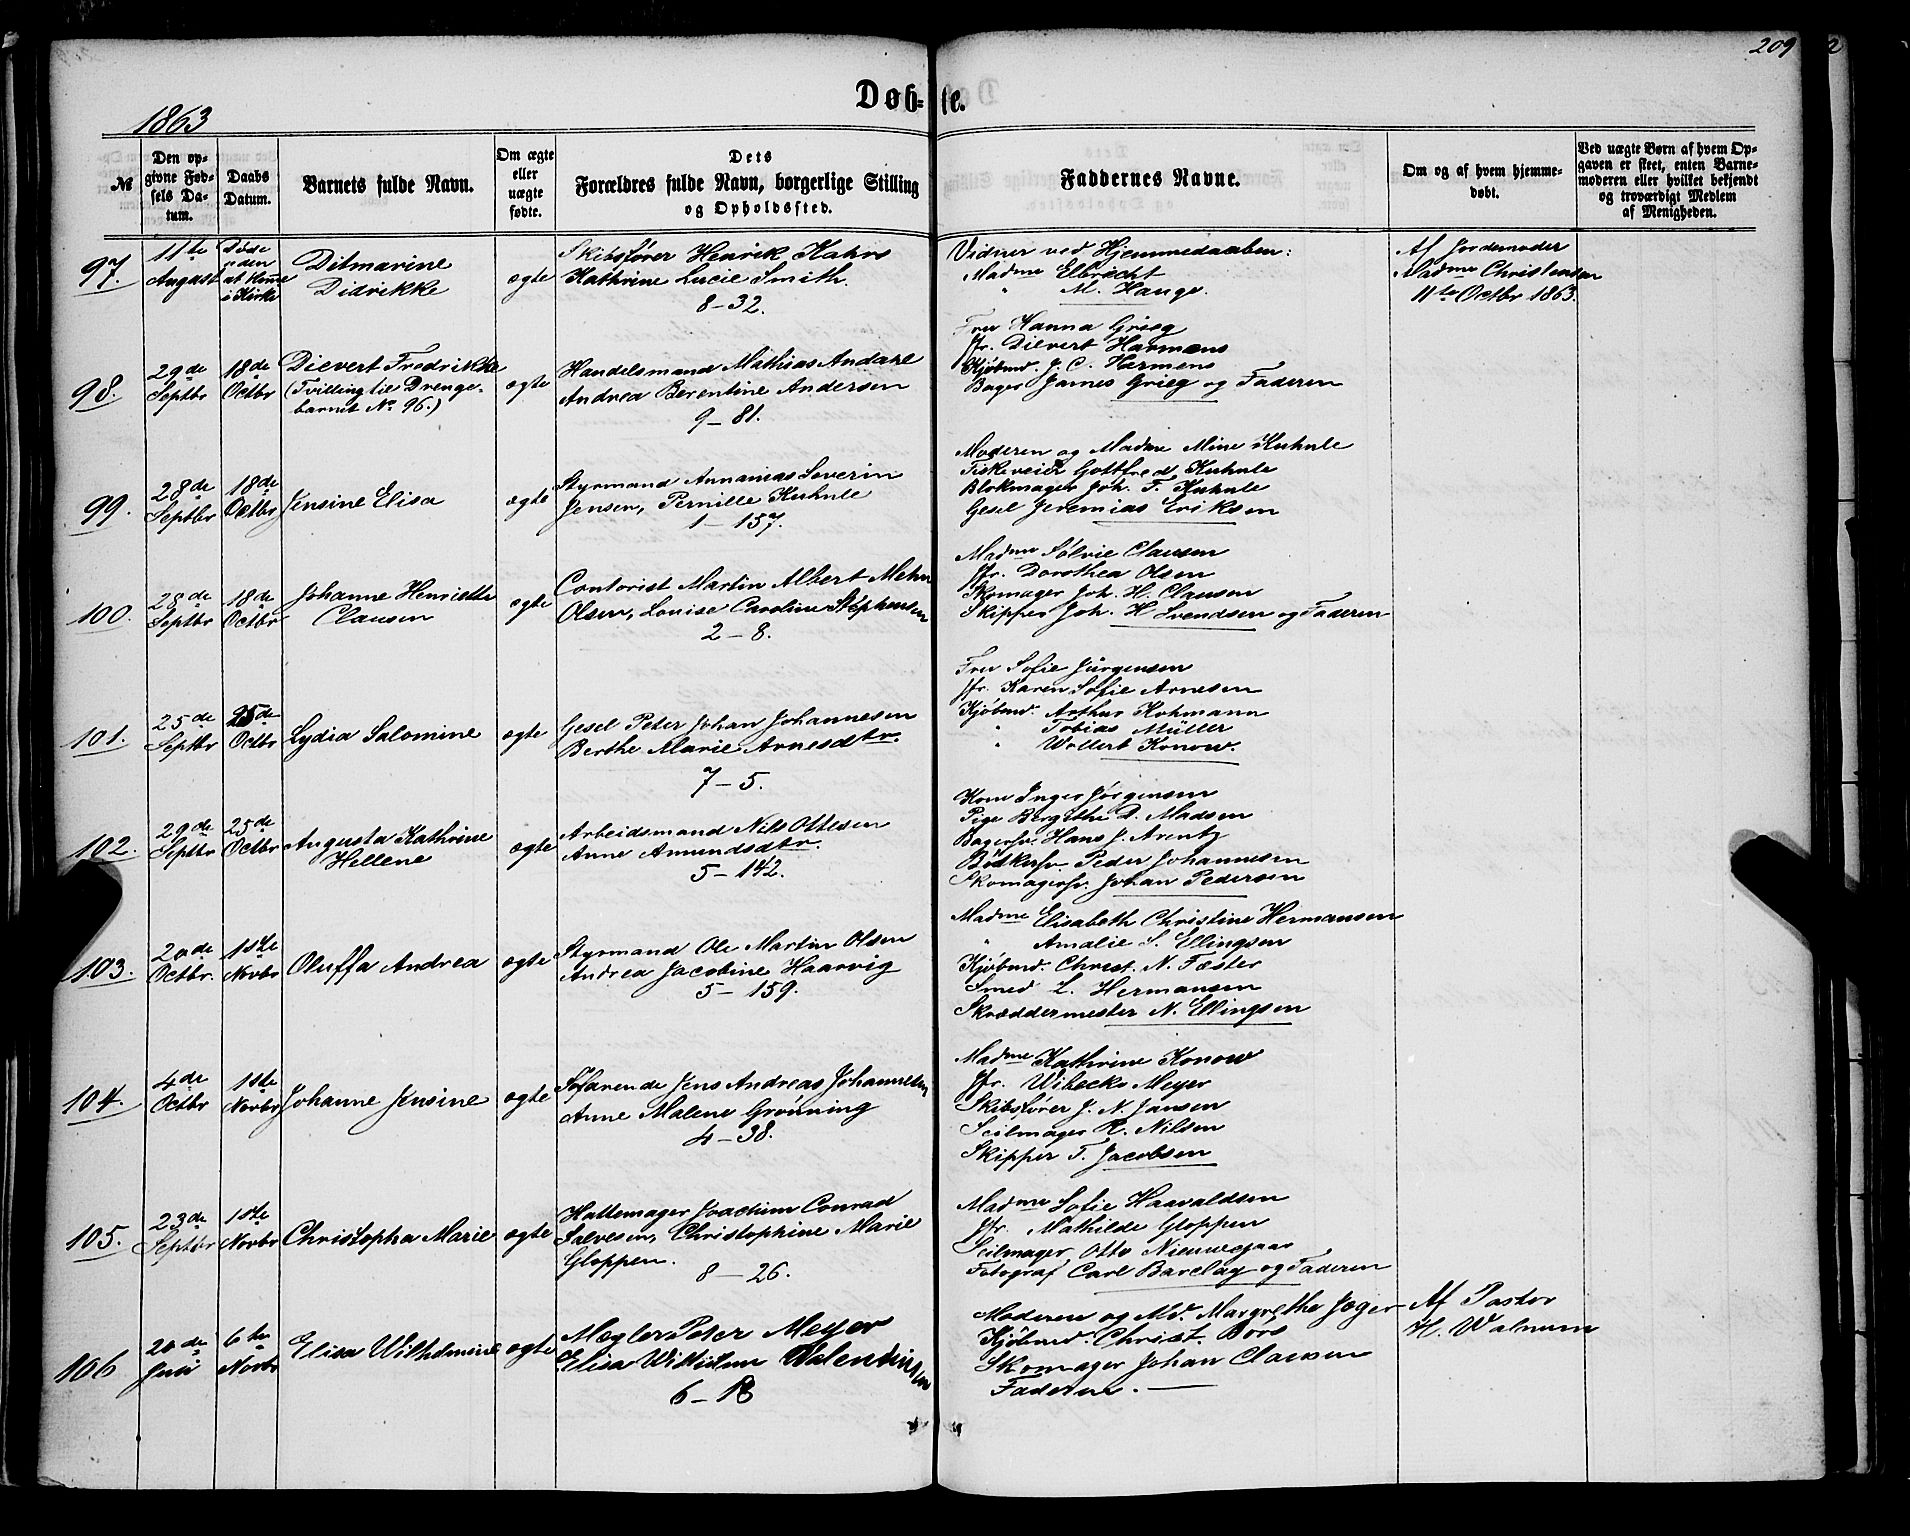 209
1863
Døb-te.
№
Den opgivne Fødsels Datum.
Daabs Datum.
Barnets fulde Navn.
Om ægte eller uægte fødte.
Dets Forældres fulde Navn, borgerlige Stilling og Opholdssted.
Faddernes Navne.
Om og af hvem hjemmedøbt.
Ved uægte Børn af hvem Opgaven er skeet, enten Barnemoderen eller hvilket bekjendt og troværdigt Medlem af Menigheden.
97.
11te August
Døde uden at komme i Kirke
Ditmarine
Didrikke
ægte
Skibsfører Henrik Hahrs
Kathrine Lucie Smith.
8-32.
Vidner ved Hjemmedaaben:
Madme Elbrecht
" M. Hauge.
Af Jordemoder
Madme Christensen
11te Octbr 1863.
98.
29de Septbr
18de Octbr
Dievert Fredrikke
(Tvilling til Drenge-
barnet No 96.)
ægte
Handelsmand Mathias Andahl
Andrea Berentine Andersen
9-81.
Fru Hanna Grieg
Jfr. Dievert Harmens
Kjøbmd. J. C. Harmens
Bager James Grieg og Faderen
99.
28de Septbr
18de Octbr
Jensine Elisa
ægte
Styrmand Annanias Severin
Jensen, Pernille Kuhnle
1-157.
Moderen og Madme Mine Kuhnle
Fiskeveier Gottfred Kuhnle
Blokmager Joh. F. Kuhnle
Gesel Jeremias Eriksen
100.
28de Septbr
18de Octbr
Johanne Henriette
Clausen
ægte
Contorist Martin Albert Mehn
Olsen, Louise Caroline Stephansen
2-8.
Madme Sølvie Clausen
Jfr. Dorothea Olsen
Skomager Joh. H. Clausen
Skipper Joh. H Svendsen og Faderen
101.
25de Septbr
25de Octbr
Lydia Salomine
ægte
Gesel Peter Johan Johannesen
Berthe Marie Arnesdtr.
7-5.
Fru Sofie Jürgensen
Jfr. Karen Sofie Arnesen
Kjøbmd. Arthur Kohmann
" Tobias Müller
" Wollert Konow.
102.
29de Septbr
25de Octbr
Augusta Kathrine
Hellene
ægte
Arbeidsmand Nils Ottesen
Anne Amundsdtr.
5-142.
Kone Inger Jørgensen
Pige Bergithe D. Madsen
Bagersv. Hans J. Arentz
Bødkersv. Peder Johannesen
Skomagersv. Johan Pedersen
103.
20de Octbr.
1ste Novbr
Oluffa Andrea
ægte
Styrmand Ole Martin Olsen
Andrea Jacobine Haarvig
5-159.
Madme Elisabeth Christine Hermansen
" Amalie S. Ellingsen
Kjøbmd. Christ. N. Fæster
Smed L. Hermansen
Skræddermester N. Ellingsen
104.
4de Octbr
1ste Novbr
Johanne Jensine
ægte
Søfarende Jens Andreas Johannesen
Anne Malene Grønning
4-38.
Madme Kathrine Konow
Jfr. Wibecke Meyer
Skibsfører J. N. Jansen
Seilmager R. Nilsen
Skipper T. Jacobsen
105.
23de Septbr
1ste Novbr
Christopha Marie
ægte
Hattemager Joachim Conrad
Salvesen, Christophine Marie
Gloppen.
8-26.
Madme Sofie Haavaldsen
Jfr. Mathilde Gloppen
Seilmager Otto Nieuwejaar
Fotograf Carl Barclay og Faderen
106
20de Juni
6te Novbr
Elisa Wilhelmine
ægte
Mægler Peter Meyer
Elisa Wilhelm Valentinsen
6-18
Moderen og Md. Margrethe Jæger
Kjøbmd. Christ. Bors
Skomager Johan Clausen
Faderen.
Af Pastor
H. Walnum